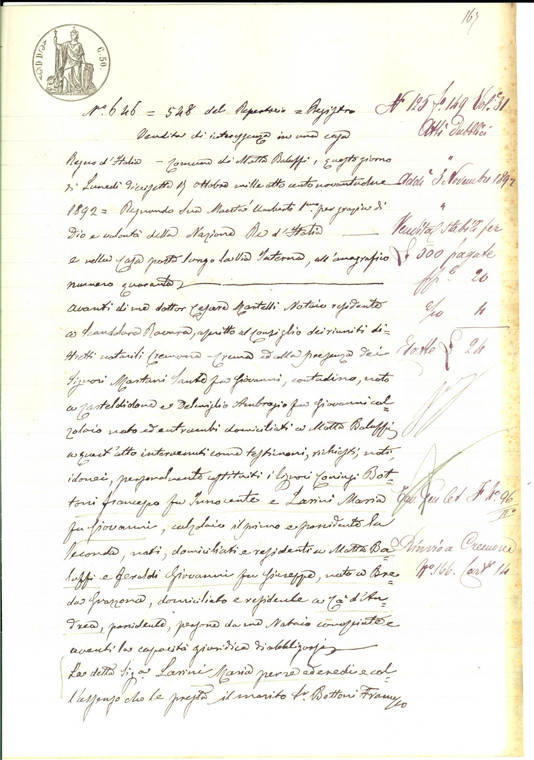 167
C. 50.
N° 646 = 548 del Repertorio = Registro
Vendita di interessenza in una casa
Regno d'Italia - Comune di Motta Baluffi, questo giorno
di Lunedì diciisette 17 ottobre mille otto cento novantadue
1892 = Regnando Sua Maestà Umberto I° per grazia di
Dio e volontà della Nazione Re d'Italia
e nella Casa posta lungo la Via Interna, all'anagrafico
numero quaranta
Avanti di me dottor Cesare Martelli Notaio residente
a Scandolara Ravara, ascritto al Consiglio dei riuniti di-
stretti notarili Cremona - Crema ed alla presenza dei
Signori Mantani Sante fu Giovanni, contadino, nato
a Casteldidone e Delmiglio Ambrogio fu Giovanni cal-
zolaio nato ed entrambi domiciliati a Motta Baluffi,
a quest'atto intervenuti come testimoni, richiesti, noti
idonei, personalmente costituiti i Signori Coniugi Bot-
toni Francesco fu Innocente e Lasini Maria
fu Giovanni, calzolaio il primo e possidente la
seconda, nati, domiciliati e residenti a Motta Ba-
luffi e Geraldi Giovanni fu Giuseppe, nato a Bre-
da Guazzona, domiciliato e residente a Ca' d'An-
drea, possidente, persone da me Notaio conosciute e
aventi la capacità giuridica di obbligarsi
La detta Sig.a Lasini Maria per se ed eredi e col-
l'assenso che le presta il marito Sr. Bottoni Francesco
N° 125 f° 149 Vol. 31
Atti Pubblici
Addì 3 Novembre 1892
Vendita stabili per
£ 500 pagate
20
4
£ 24
N° 96
a Cremona
N° 166. Cart. 14